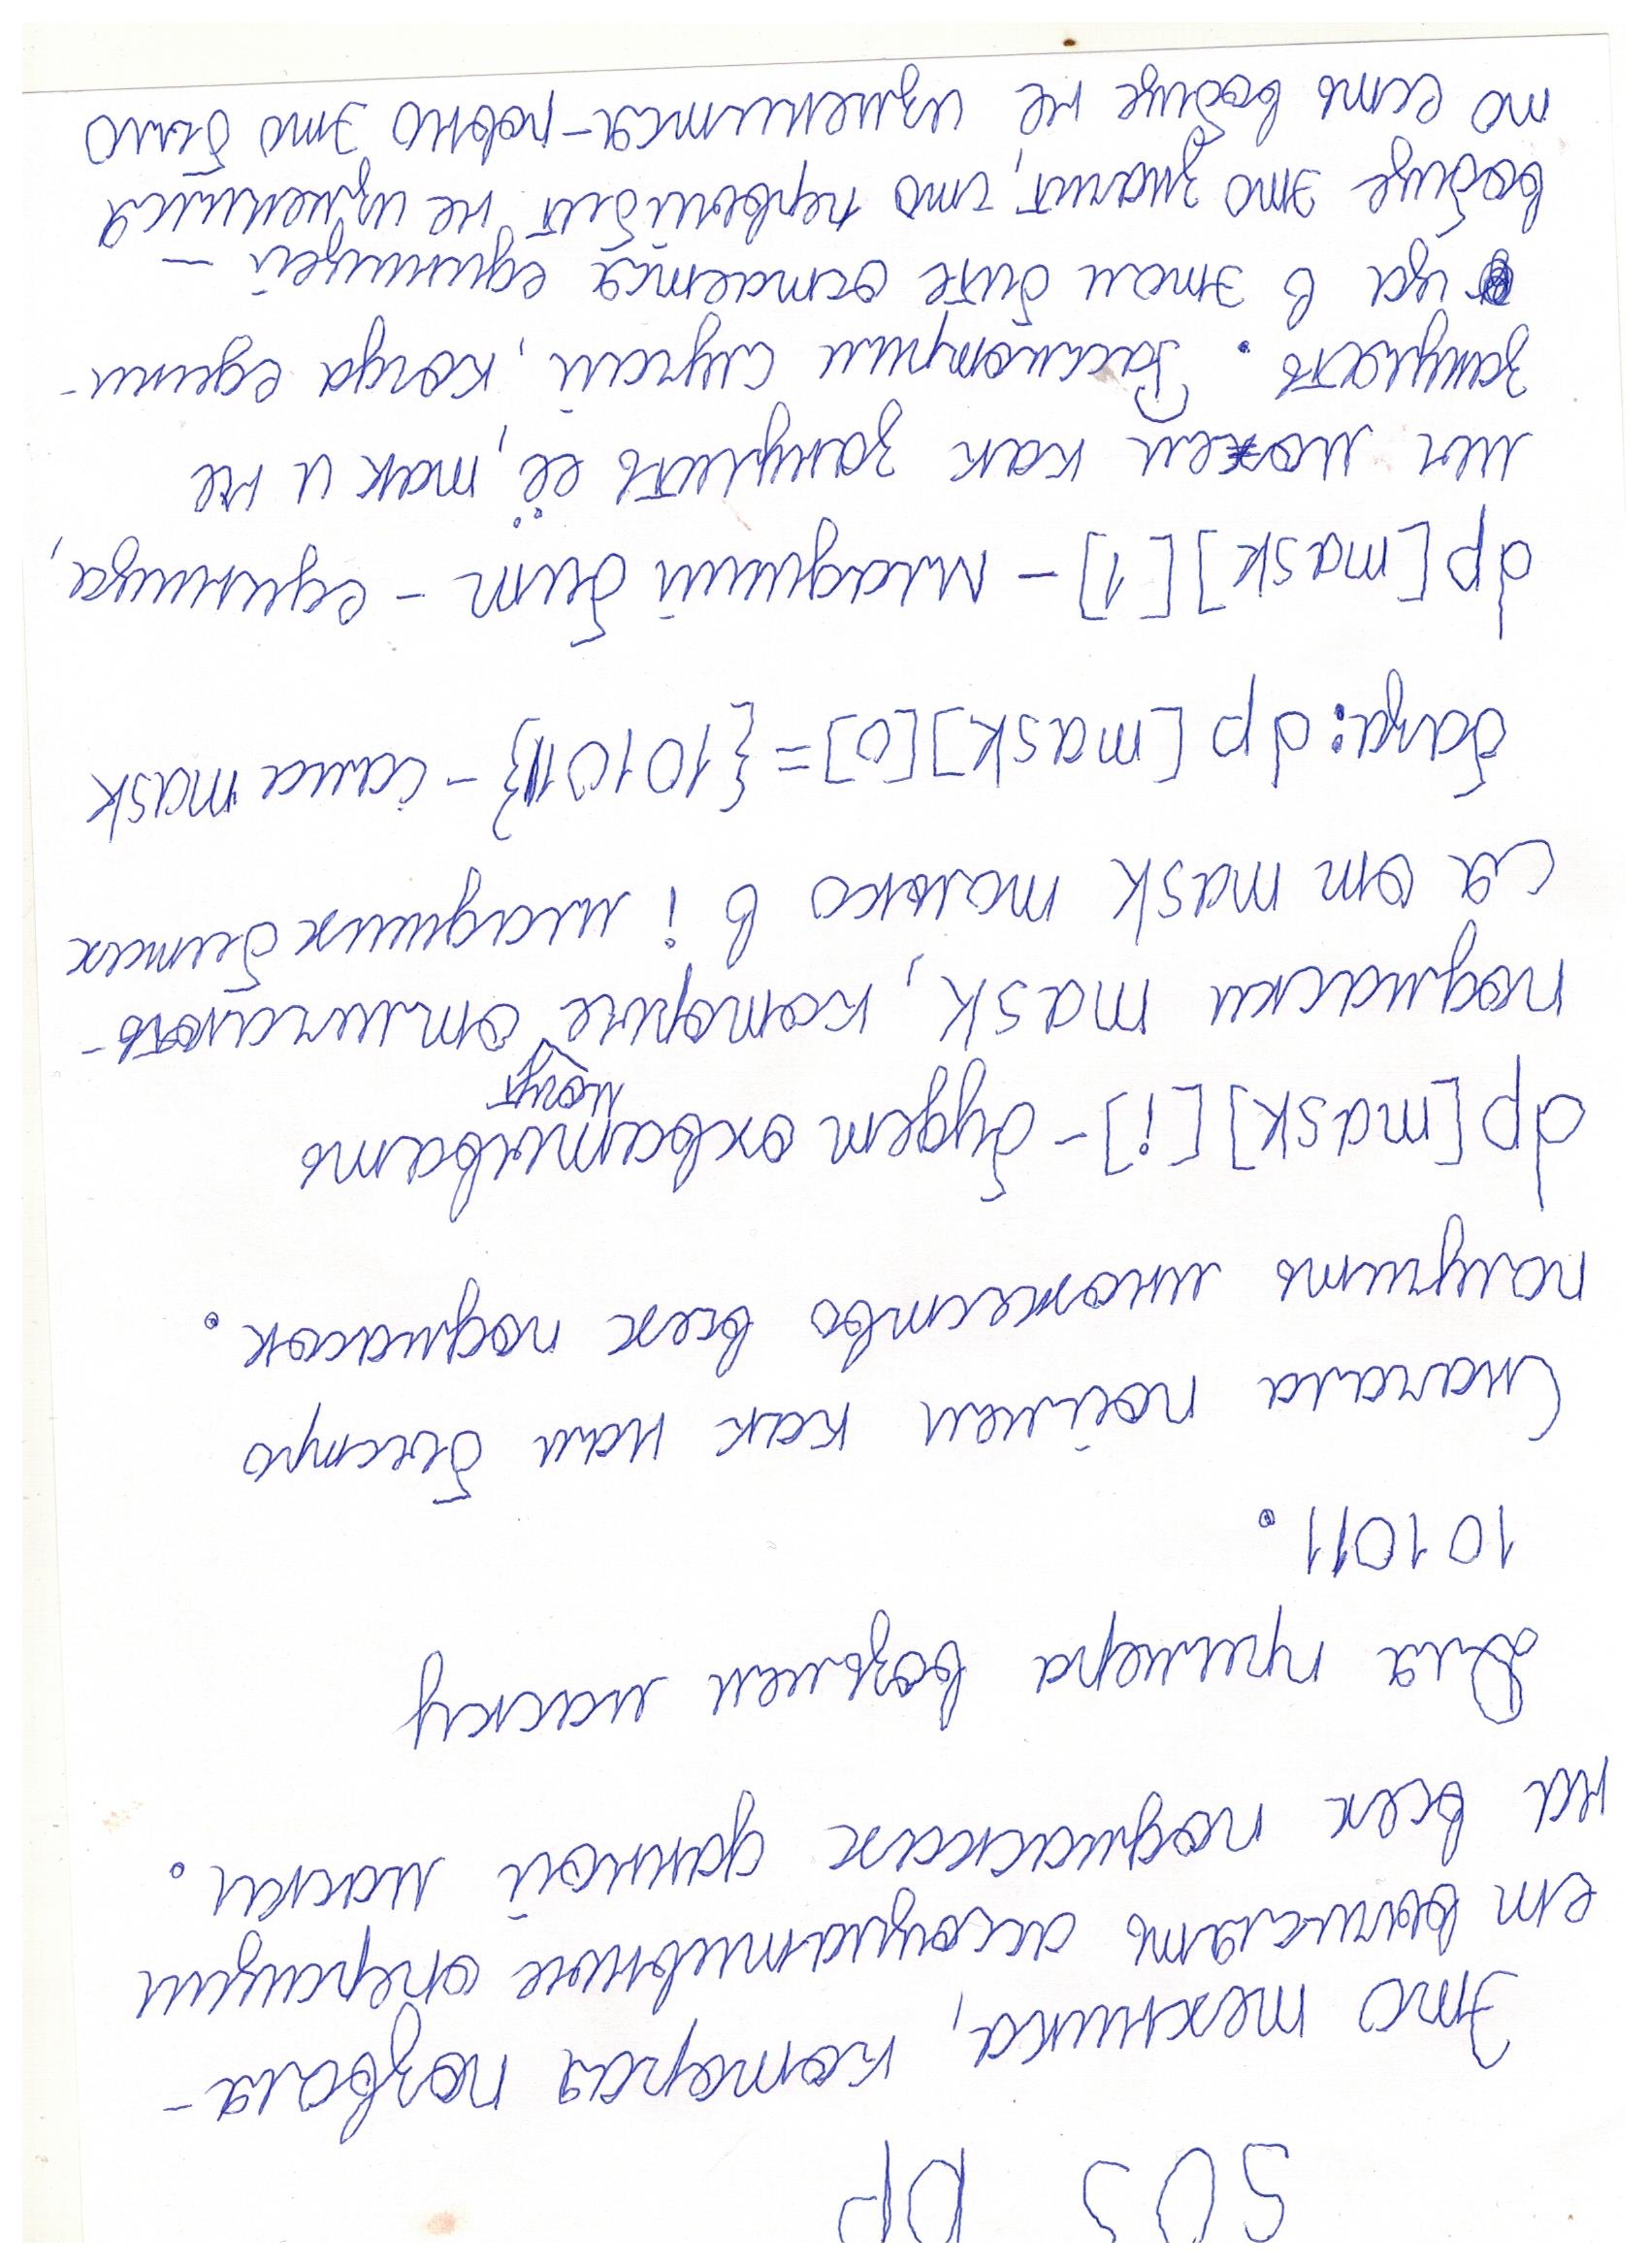 SOS DP
Это техника, которая позволя-
ет вычислять ассоциативные операции
на всех подмасках данной маски.
Для примера возьмем маску
101011.
Сначала поймем как нам быстро
получить множество всех подмасок.
dp[mask][i] - будет охватывать
могут
подмаски mask, которые отличать-
ся от mask только в i младших битах
база: dp[mask][0]={101011} - сама mask
dp[mask][1] - младший бит - единица,
мы можем как занулить её, так и не
занулять. Рассмотрим случай, когда едини-
ца в этом бите остается единицей -
вобще это значит, что первый бит не изменился
то есть вобще не изменится - ровно это было